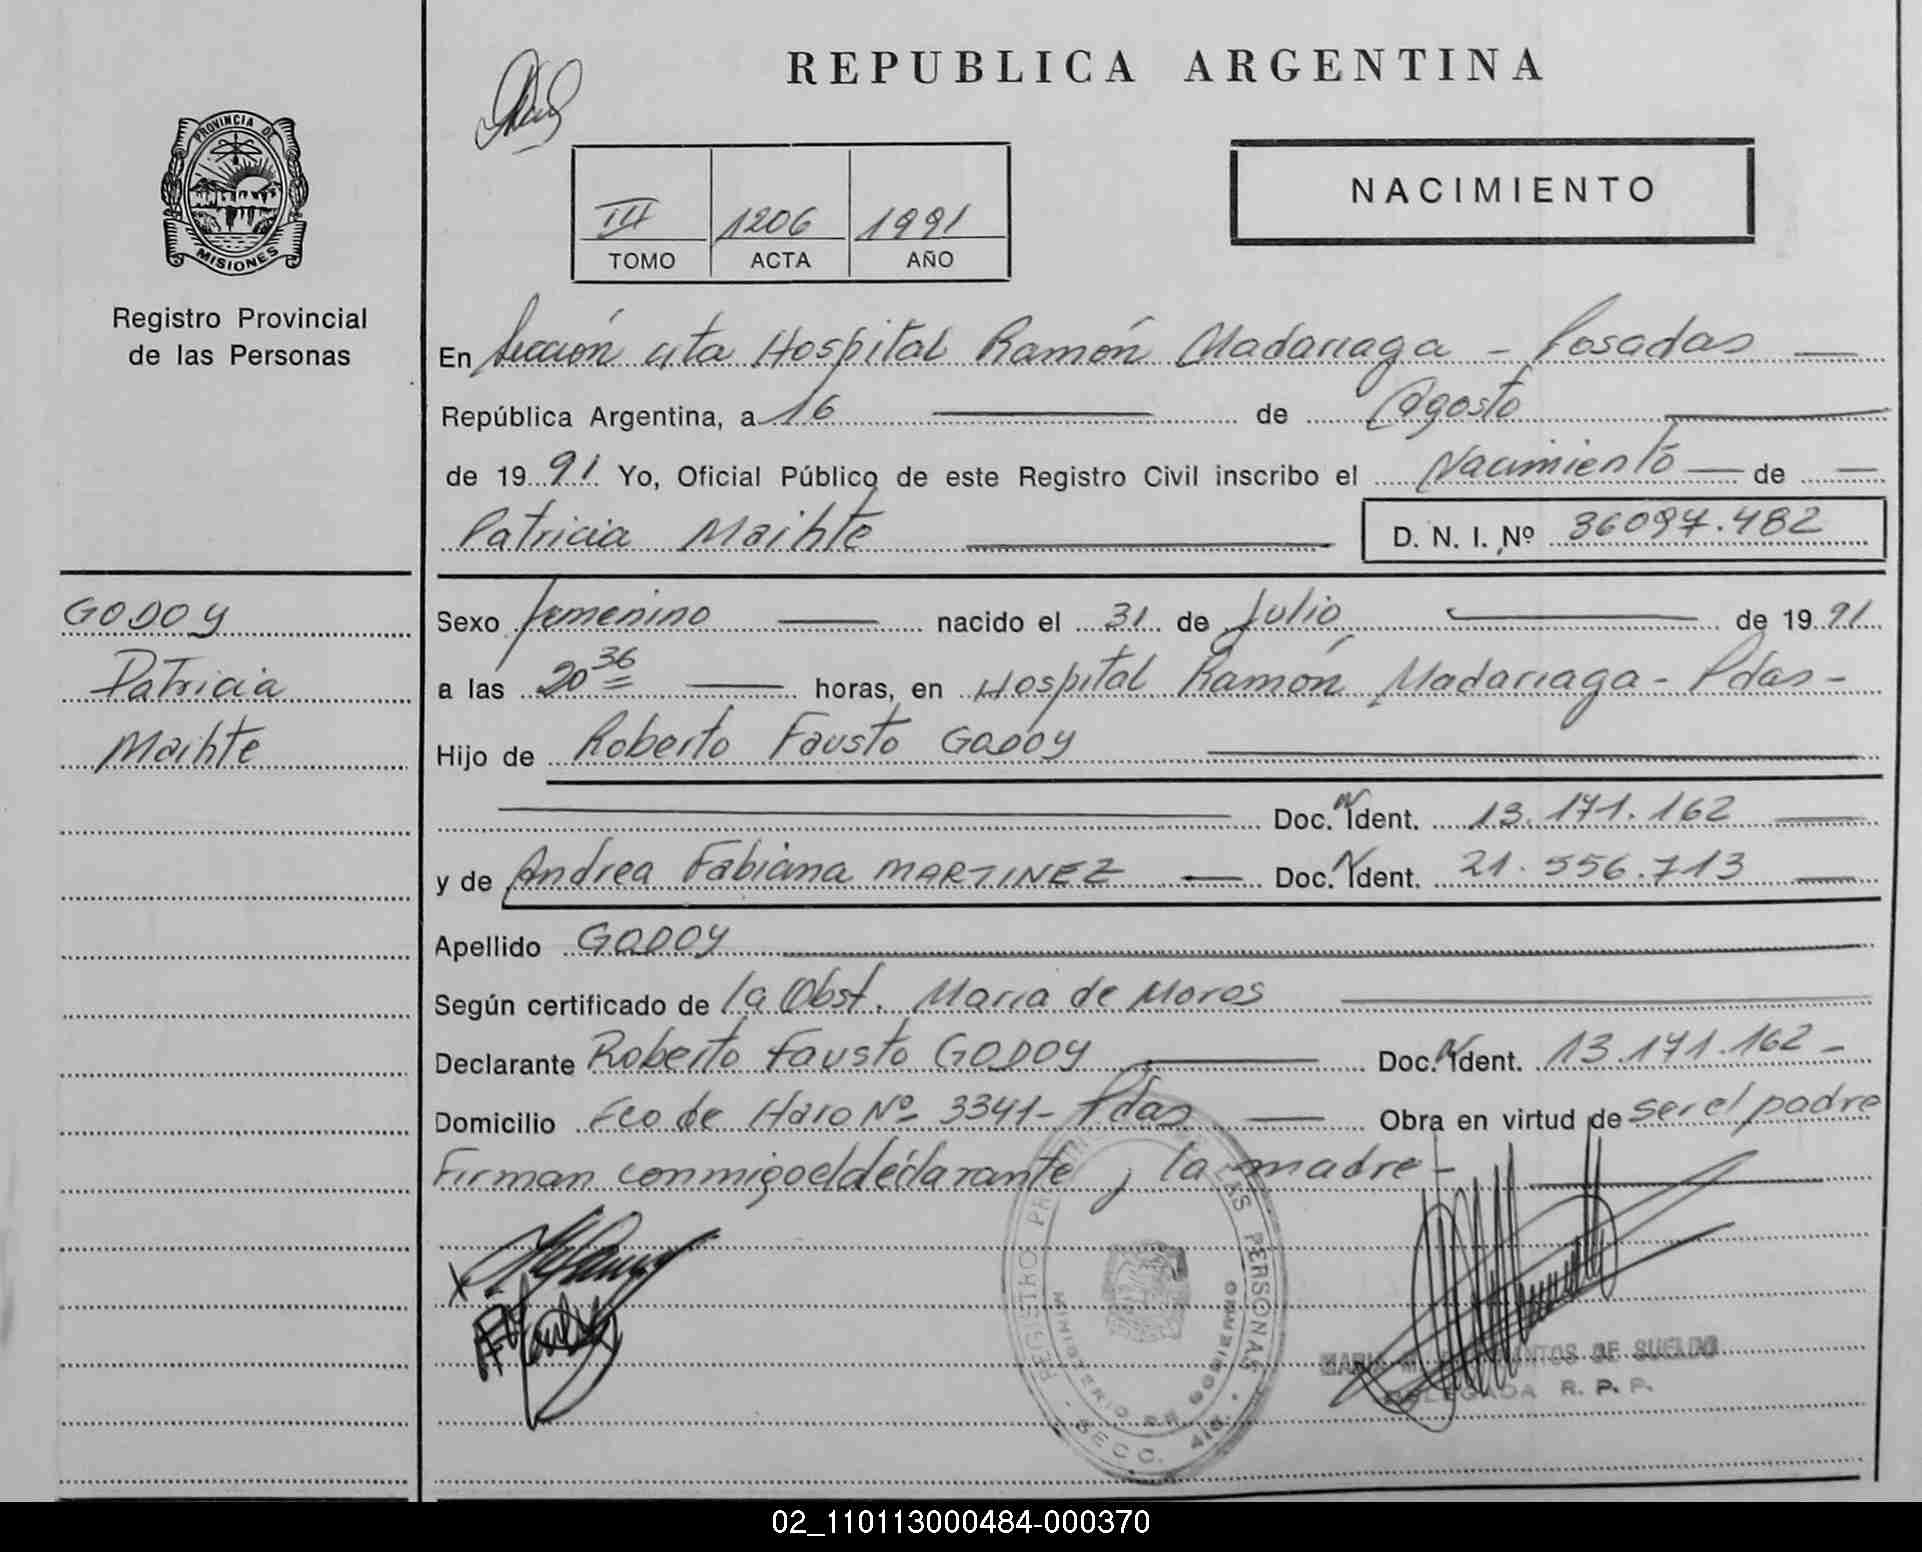 REPUBLICA ARGENTINA
PROVINCIA DE
MISIONES
Registro Provincial
de las Personas
NACIMIENTO
III 1206 1991
TOMO ACTA AÑO
En Sección 4ta Hospital Ramón Madariaga - Posadas
República Argentina, a 16 de Agosto
de 1991 Yo, Oficial Público de este Registro Civil inscribo el Nacimiento de
Patricia Maihte D. N. I. Nº 36097.482
GODOY
Patricia
Maihte
Sexo femenino nacido el 31 de Julio de 1991
a las 20 36 horas, en Hospital Ramón Madariaga - Pdas -
Hijo de Roberto Fausto GODOY
Doc. N Ident. 13.171.162
y de Andrea Fabiana MARTINEZ Doc. N Ident. 21.556.713
Apellido GODOY
Según certificado de la Obst. Maria de Moros
Declarante Roberto Fausto GODOY Doc. N Ident. 13.171.162 -
Domicilio Fco de Haro Nº 3341 - Pdas Obra en virtud de ser el padre
Firman conmigo el declarante y la madre -
REGISTRO PROVINCIAL DE LAS PERSONAS
MINISTERIO DE GOBIERNO
SECC. 4ta.
SANTOS DE SUELDO
DELEGADA R. P. P.
02_110113000484-000370